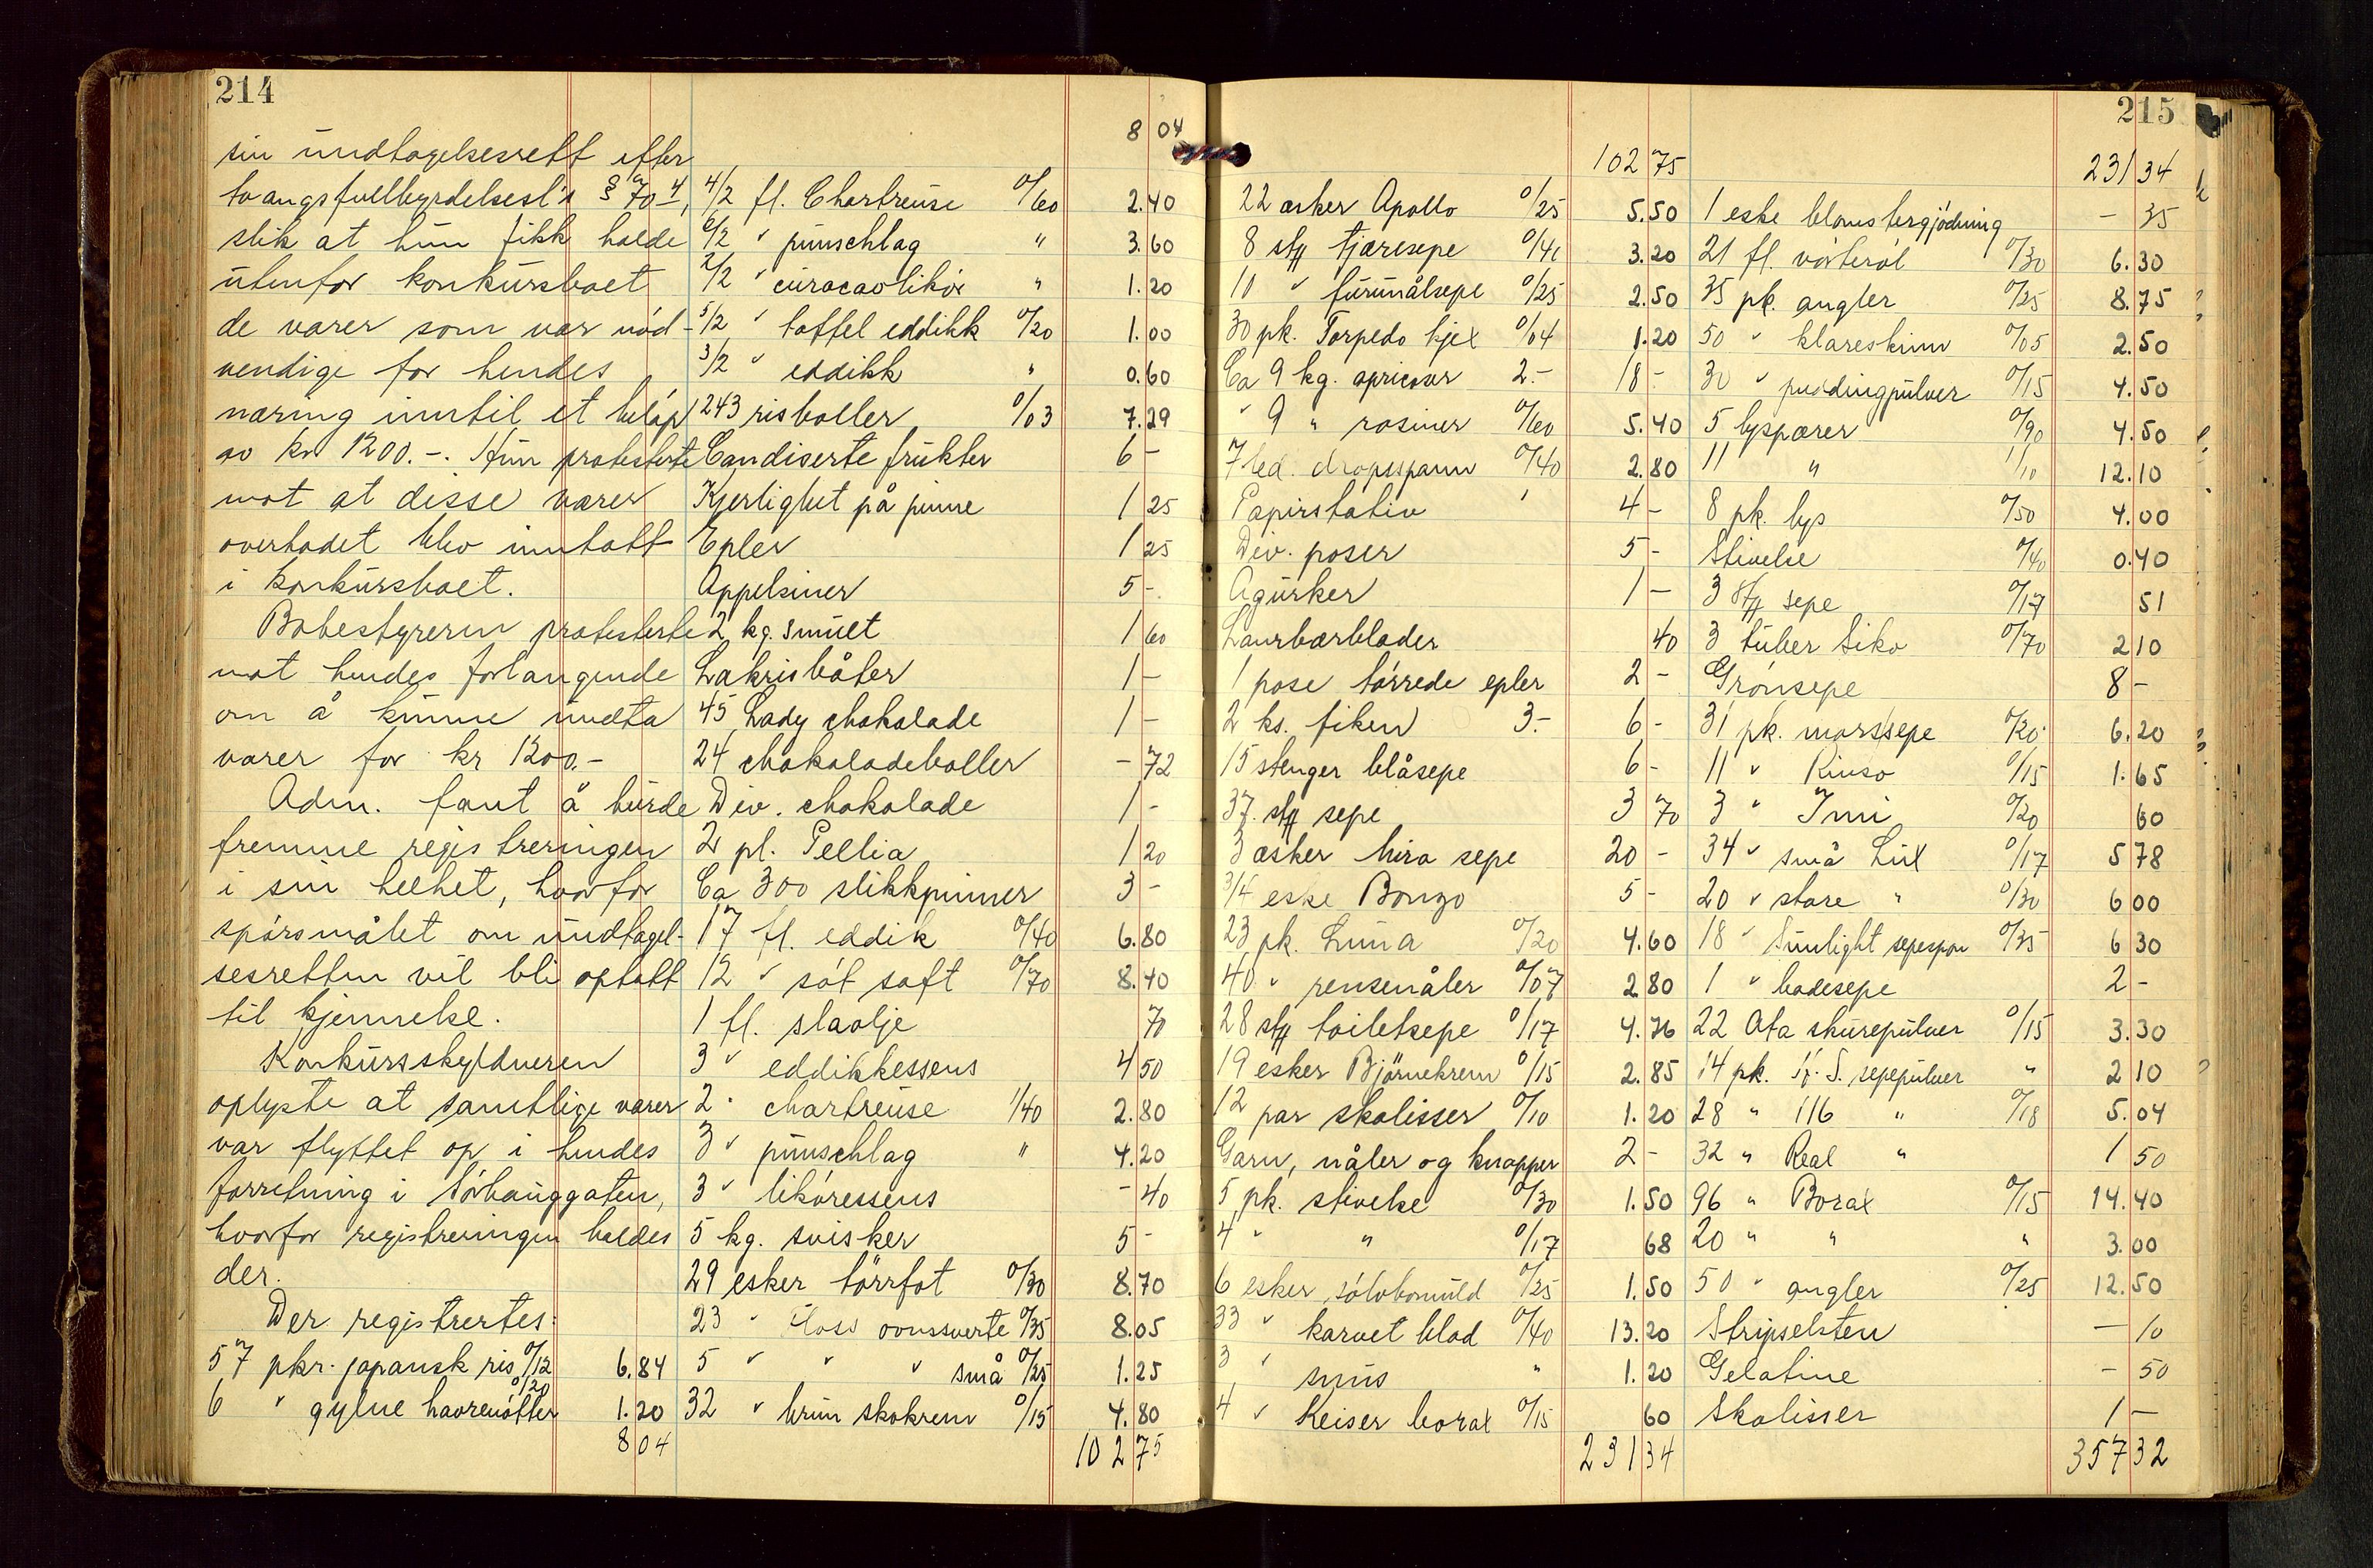 214
sin undtagelsesrett efter
tvangsfullbyrdelsesl's § 70 4,
slik at hun fikk holde
utenfor konkursboet
de varer som var nød-
vendige for hendes
næring inntil et beløp
av kr 1200.-. Hun protesterte
mot at disse varer
overhodet blev inntatt
i konkursboet.
Bobestyreren protesterte
mot hendes forlangende
om å kunne undta
varer for kr 1200.-
Adm. fant å burde
fremme registreringen
i sin helhet, hvorfor
spørsmålet om undtagel-
sesretten vil bli optatt
til kjennelse.
Konkursskyldneren
oplyste at samtlige varer
var flyttet op i hendes
forretning i
hvorfor registreringen holdes
der.
Der registrertes:
57 pkr. japansk ris 0/12 6.84
6 " gylne havrenøtter 0/20 1.20
8 04
8 04
4/2 fl. Chartreuse 0/60 2.40
6/2 " punschlag " 3.60
2/2 " curacaolikör " 1.20
5/2 " taffel eddikk 0/20 1.00
3/2 " eddikk " 0.60
243 risboller 0/03 7.29
Candiserte frukter 6 -
Kjerlighet på pinne 1 25
Epler 1 25
Appelsiner 5 -
2 kg. smult 1 60
Lakrisbåter 1 -
45 Lady chokolade 1 -
24 chokoladeboller - 72
Div. chokolade 1 -
2 pl. Pellia 1 20
Ca 300 slikkpinner 3 -
17 fl. eddik 0/40 6.80
12 " søt saft 0/70 8.40
1 fl. slaolje 70
3 " eddikkessens 4 50
2 " chartreuse 1/40 2.80
3 " punschlag " 4.20
3 " likøressens - 40
5 kg. svisker 5 -
29 esker tørrfot 0/30 8.70
23 " ovnssverte 0/35 8.05
5 " " " små 0/25 1.25
32 " brun skokrem 0/15 4.80
102 75
215
102 75
22 æsker Apollo 0/25 5.50
8 stk tjæresepe 0/40 3.20
10 " furunålsepe 0/25 2.50
30 pk. Torpedo kjex 0/04 1.20
Ca 9 kg. apricoser 2.- 18 -
" 9 " rosiner 0/60 5.40
7 dropsspann 0/40 2.80
Papirstativ 4 -
Div. poser 5 -
Agurker 1 -
Laurbærblader 40
1 pose tørrede epler 2 -
2 ks. fiken 3.- 6 -
15 stenger blåsepe 6 -
37 stk sepe 3 70
3 æsker Mira sepe 20 -
3/4 eske Bonzo 5 -
23 pk. Luna 0/20 4.60
40 " rensenåler 0/07 2.80
28 stk toiletsepe 0/17 4.76
19 esker Bjørnekrem 0/15 2.85
12 par skolisser 0/10 1.20
Garn, nåler og knapper 2 -
5 pk. stivelse 0/30 1.50
4 " " 0/17 68
6 esker sølvbomuld 0/25 1.50
33 " karvet blad 0/40 13.20
3 " snus " 1.20
4 " Keiser borax 0/15 60
231 34
231 34
1 eske blomstergjødning - 35
21 fl. vørterøl 0/30 6.30
35 pk. angler 0/25 8.75
50 " klareskinn 0/05 2.50
30 " puddingpulver 0/15 4.50
5 lyspærer 0/90 4.50
11 " 1/10 12.10
8 pk. lys 0/50 4.00
Stivelse 0/40 0.40
3 stk sepe 0/17 51
3 tuber Siko 0/70 2 10
Grønsepe 8 -
31 pk. morssepe 0/20 6.20
11 " Rinso 0/15 1.65
3 " Imi 0/20 60
34 " små Lux 0/17 5 78
20 " store " 0/30 6 00
18 " Sunlight sepespon 0/35 6 30
1 " badesepe 2 -
22 Ata skurepulver 0/15 3.30
14 pk. sepepulver " 2 10
28 " 116 " 0/18 5.04
32 " Real " 1 50
96 " Borax 0/15 14.40
20 " " " 3.00
50 " angler 0/25 12.50
- 10
Gelatine - 50
Skolisser 1 -
357 32